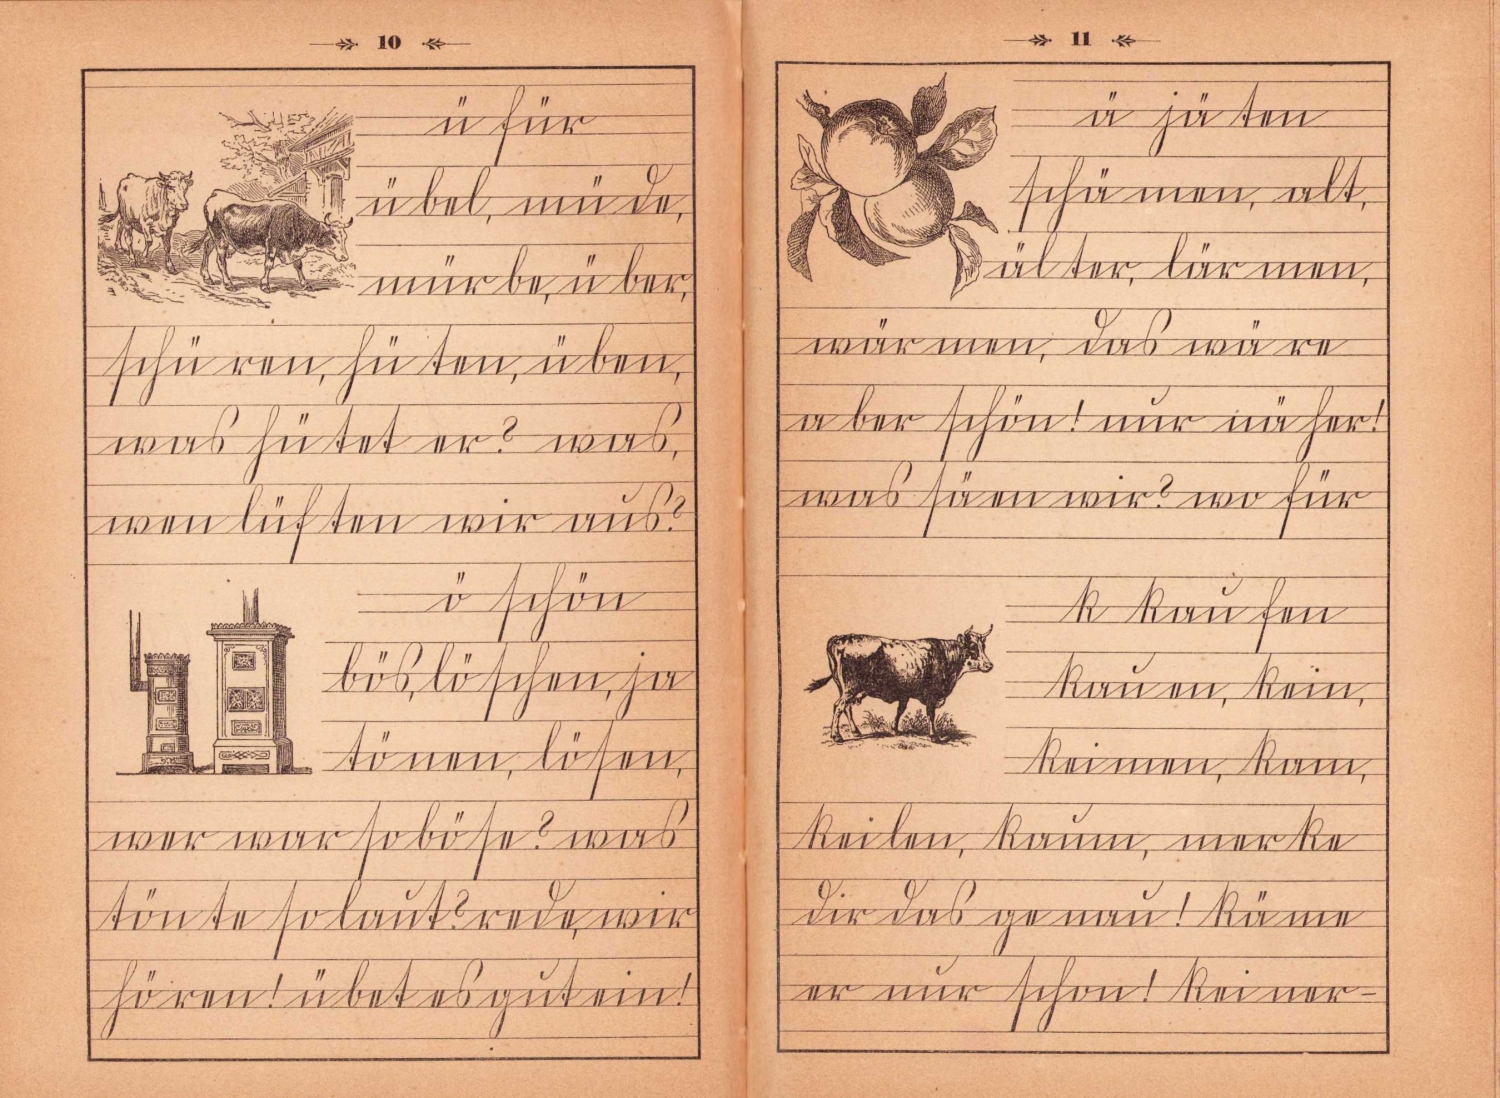 10
ü für
ü bel, mü de,
mür be, ü ber,
schü ren, hü ten, ü ben,
was hü tet er? was,
wen lüf ten wir aus?
ö schön
bös, lö schen, ja
tö nen, lö sen,
wer war so bö se? was
tön te so laut? rede, wir
hö ren! ü bet es gut ein!
11
ä jä ten
schä men, alt,
äl ter, lär men,
wär men, das wä re
a ber schön! nur nä her!
was sä en wir? wo für
k kau fen
kau en, kein,
kei men, kam,
kei len, kaum, mer ke
dir das ge nau! kä me
er nur schon! kei ner-